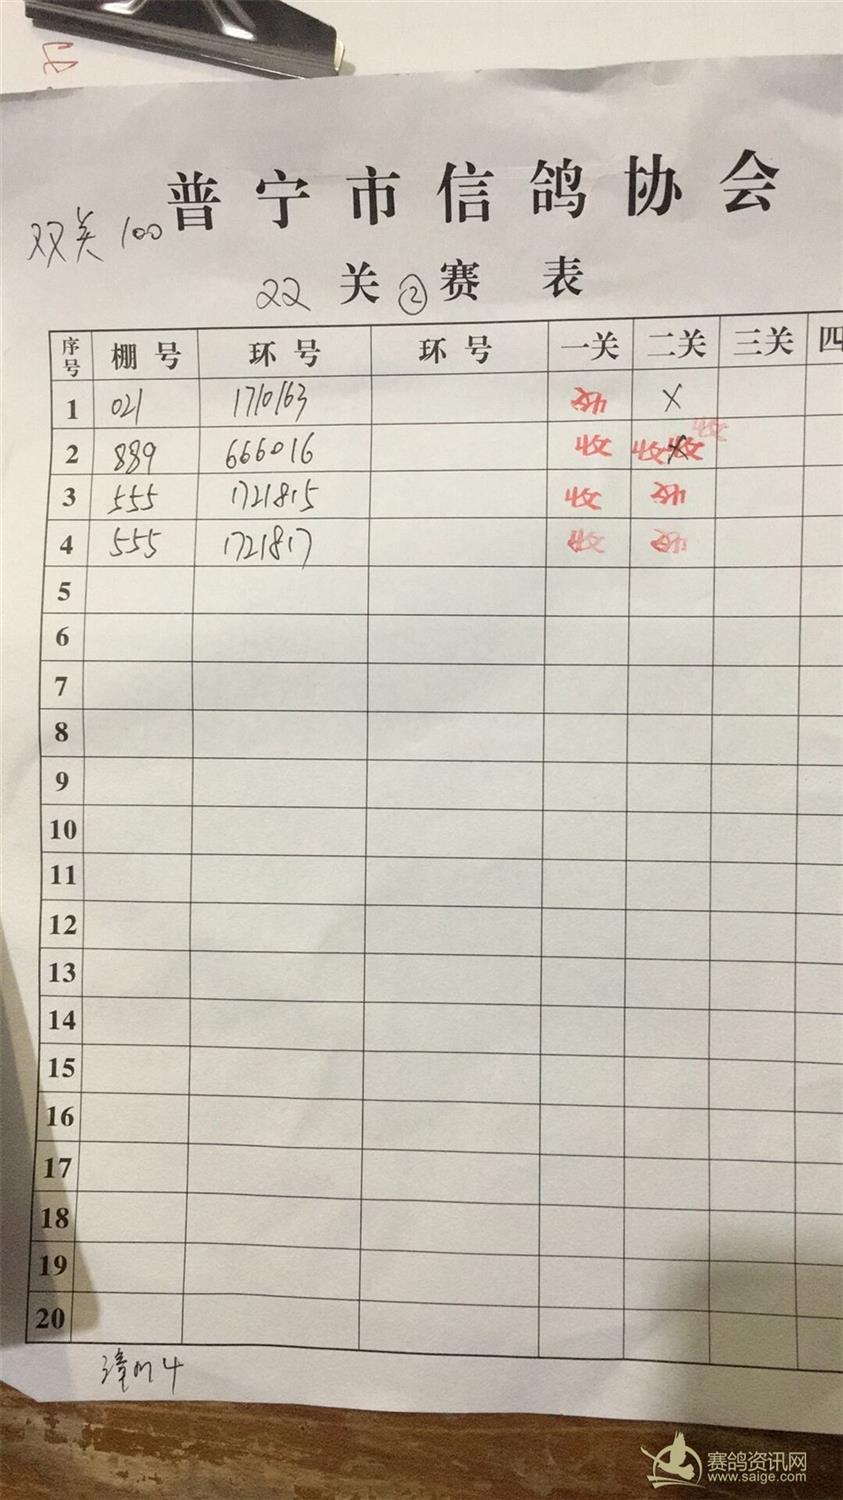 普宁市信鸽协会
双关 100
22 关 ② 赛 表
序号 棚号 环号 环号 一关 二关 三关 四
1 021 1710163 收 X
2 889 666016 收 收 收 X 收
3 555 1721815 收 收
4 555 1721817 收 收
5
6
7
8
9
10
11
12
13
14
15
16
17
18
19
20
漳州 4
赛鸽资讯网
www.saige.com